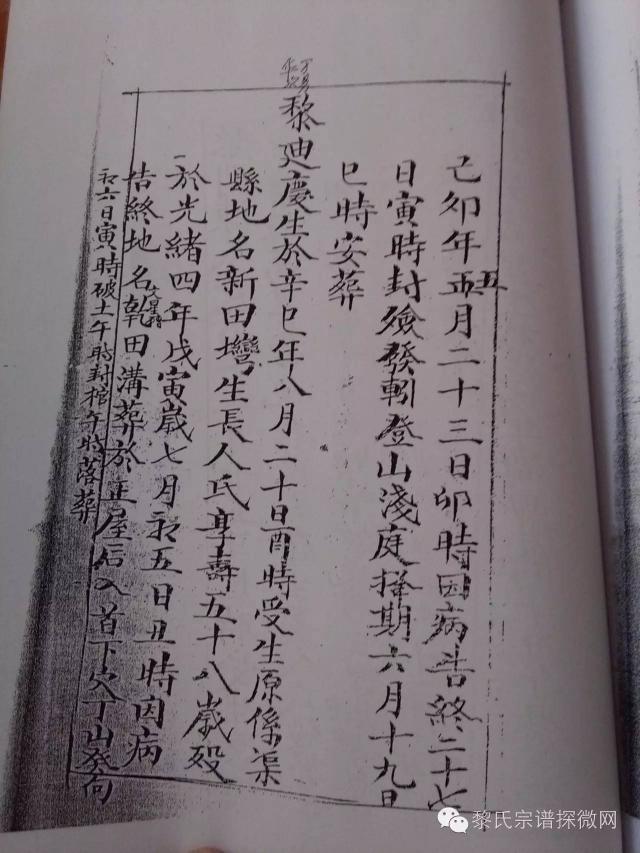 己卯年五月二十三日卯時因病告終二十七
日寅時封殮發靷登山淺庭擇期六月十九日
巳時安葬
黎廸慶生於辛巳年八月二十日酉時受生原係渠
縣地名新田塆生長人氏享壽五十八歲殁
於光緒四年戊寅歲七月初五日丑時因病
告終地名乾田溝葬於正屋后入首下穴丁山癸向
初六日寅時破土午時封棺午時落葬
黎氏宗谱探微网